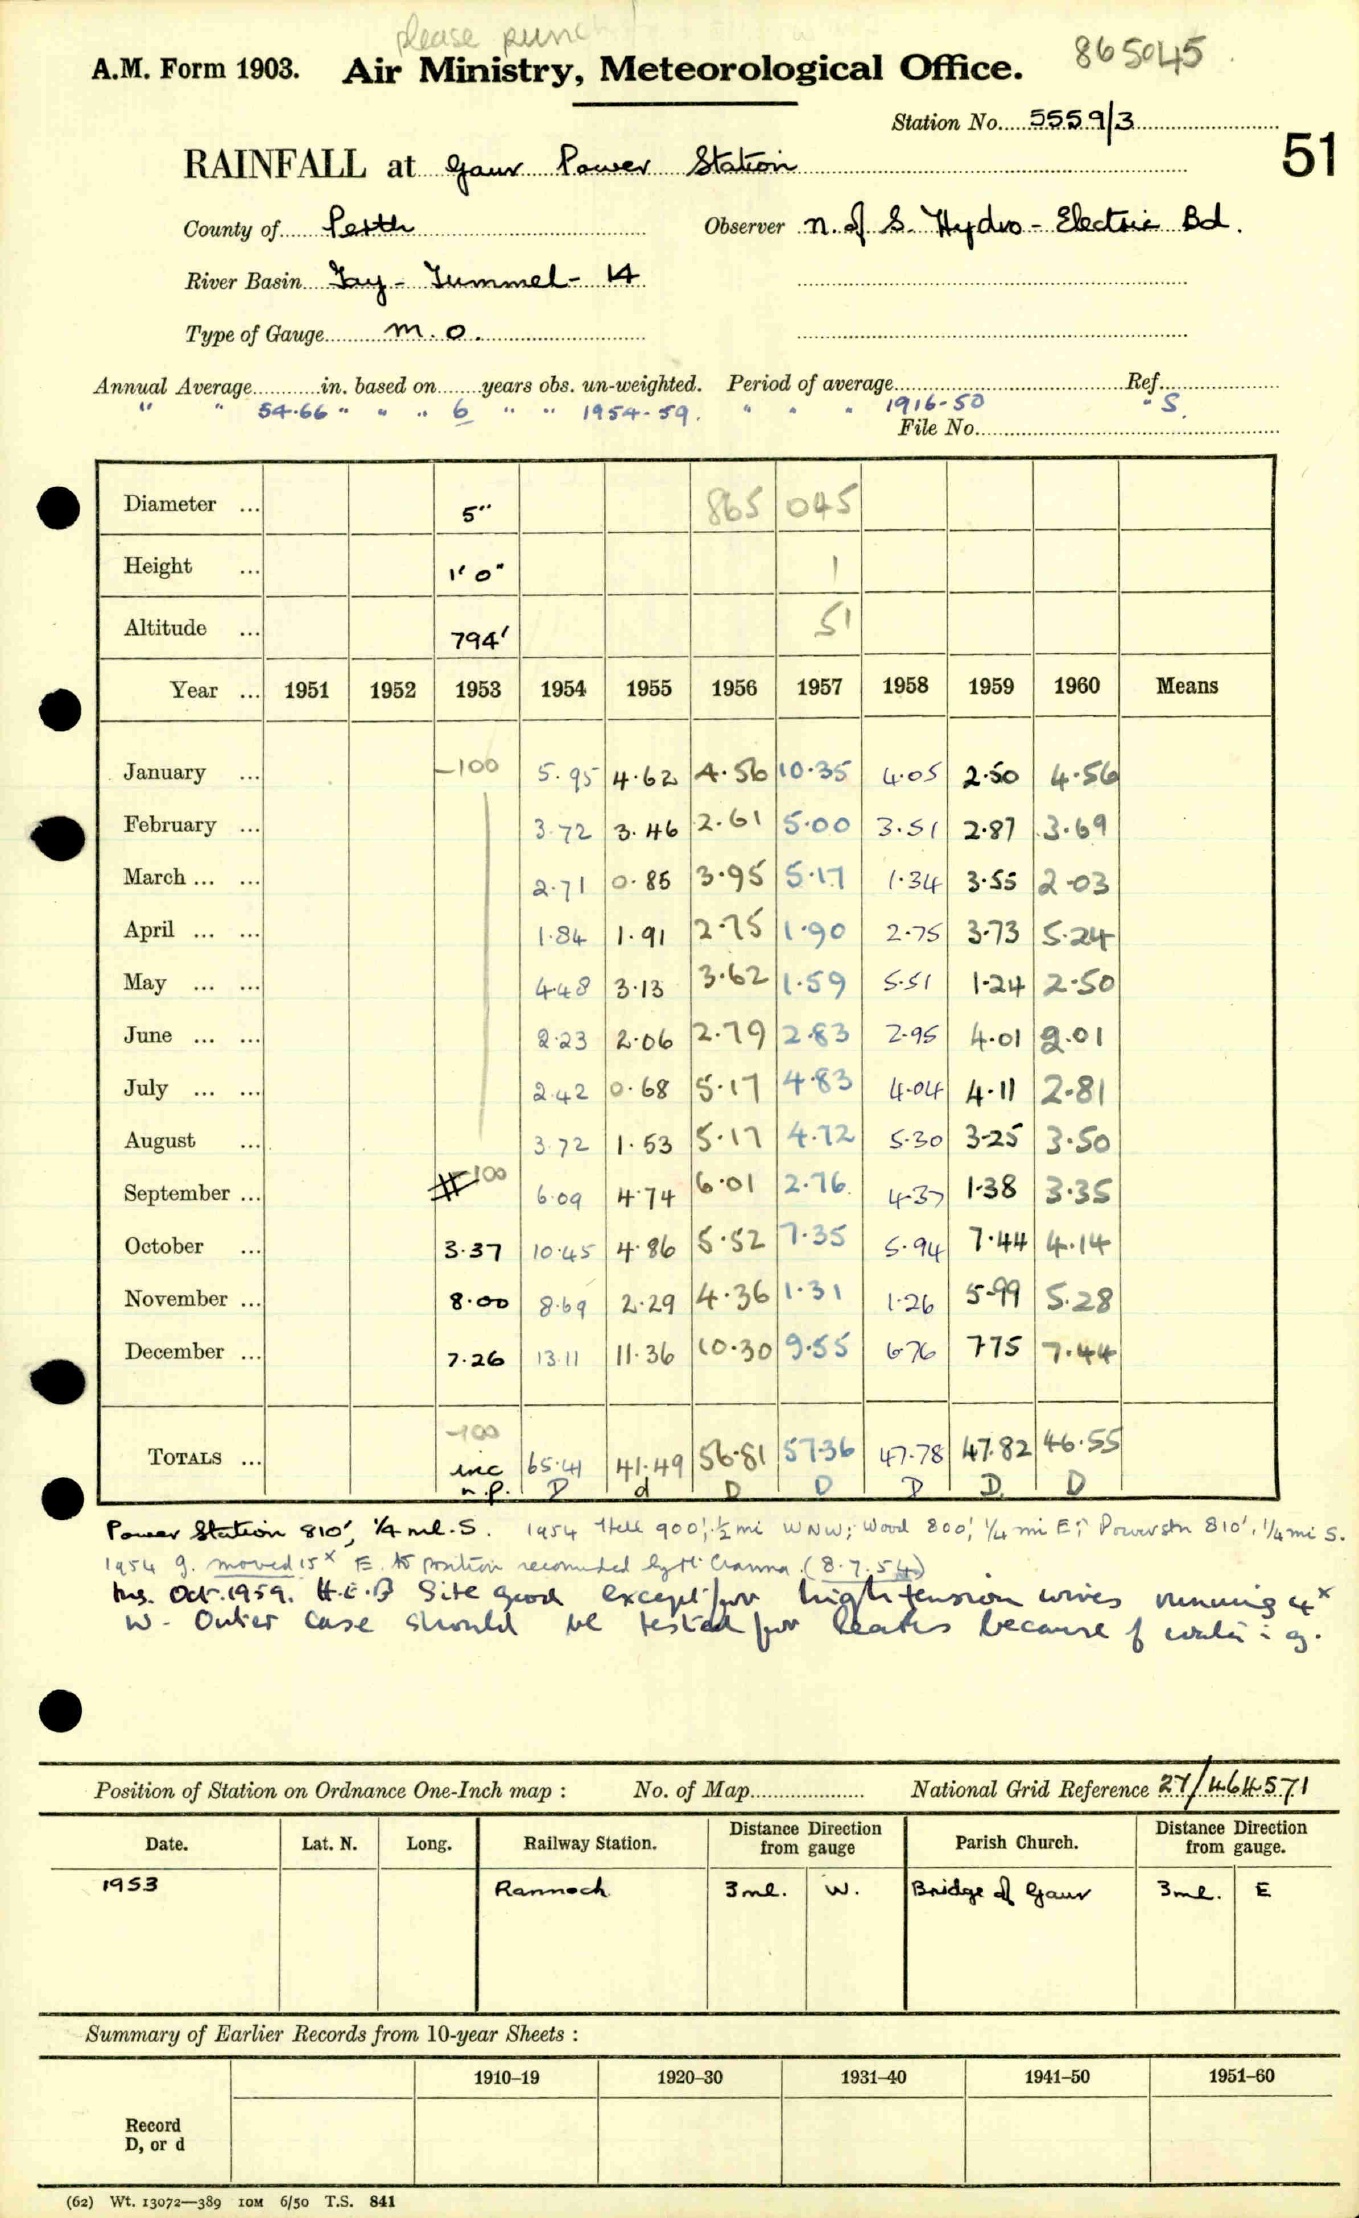 please punch
A.M. Form 1903. Air Ministry, Meteorological Office. 865045
Station No. 5559/3
51
RAINFALL at Gaur Power Station
County of Perth Observer N. of S. Hydro-Electric Bd.
River Basin Tay - Tummel - 14
Type of Gauge M.O.
Annual Average in. based on years obs. un-weighted. Period of average Ref.
" " 54.66 " " " 6 " " 1954-59. " " " 1916-50 " S.
File No.
Diameter ... 5" 865 045
Height ... 1' 0" 1
Altitude ... 794' 51
Year ... 1951 1952 1953 1954 1955 1956 1957 1958 1959 1960 Means
January ... -100 5.95 4.62 4.56 10.35 4.05 2.50 4.56
February ... 3.72 3.46 2.61 5.00 3.51 2.87 3.69
March ... ... 2.71 0.85 3.95 5.17 1.34 3.55 2.03
April ... ... 1.84 1.91 2.75 1.90 2.75 3.73 5.24
May ... ... 4.48 3.13 3.62 1.59 5.51 1.24 2.50
June ... ... 2.23 2.06 2.79 2.83 2.95 4.01 2.01
July ... ... 2.42 0.68 5.17 4.83 4.04 4.11 2.81
August ... 3.72 1.53 5.17 4.72 5.30 3.25 3.50
September ... -100 6.09 4.74 6.01 2.76 4.37 1.38 3.35
October ... 3.37 10.45 4.86 5.52 7.35 5.94 7.44 4.14
November ... 8.00 8.69 2.29 4.36 1.31 1.26 5.99 5.28
December ... 7.26 13.11 11.36 10.30 9.55 6.76 7.75 7.44
-100
TOTALS ... inc 65.41 41.49 56.81 57.36 47.78 47.82 46.55
n.p. D d D D D D D
Power Station 810', 1/4 ml. S. 1954 Hill 900', 1/2 mi WNW; Wood 800', 1/4 mi E; Power stn 810', 1/4 mi S.
1954 g. moved 15x E. to position recommended by Mr (8.7.54)
Ins. Oct. 1959. H.E.B Site good except for high tension wires running 4x
W. Outer case should be tested for leaks because of water i g.
Position of Station on Ordnance One-Inch map : No. of Map National Grid Reference 27/464571
Date. Lat. N. Long. Railway Station. Distance from gauge Direction Parish Church. Distance from gauge. Direction
1953 Rannoch 3 ml. W. Bridge of Gaur 3 ml. E
Summary of Earlier Records from 10-year Sheets :
1910–19 1920–30 1931–40 1941–50 1951–60
Record
D, or d
(62) Wt. 13072—389 10M 6/50 T.S. 841